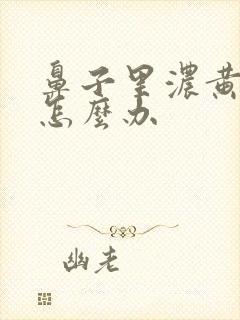 鼻子里濃黄
怎麼办
幽老